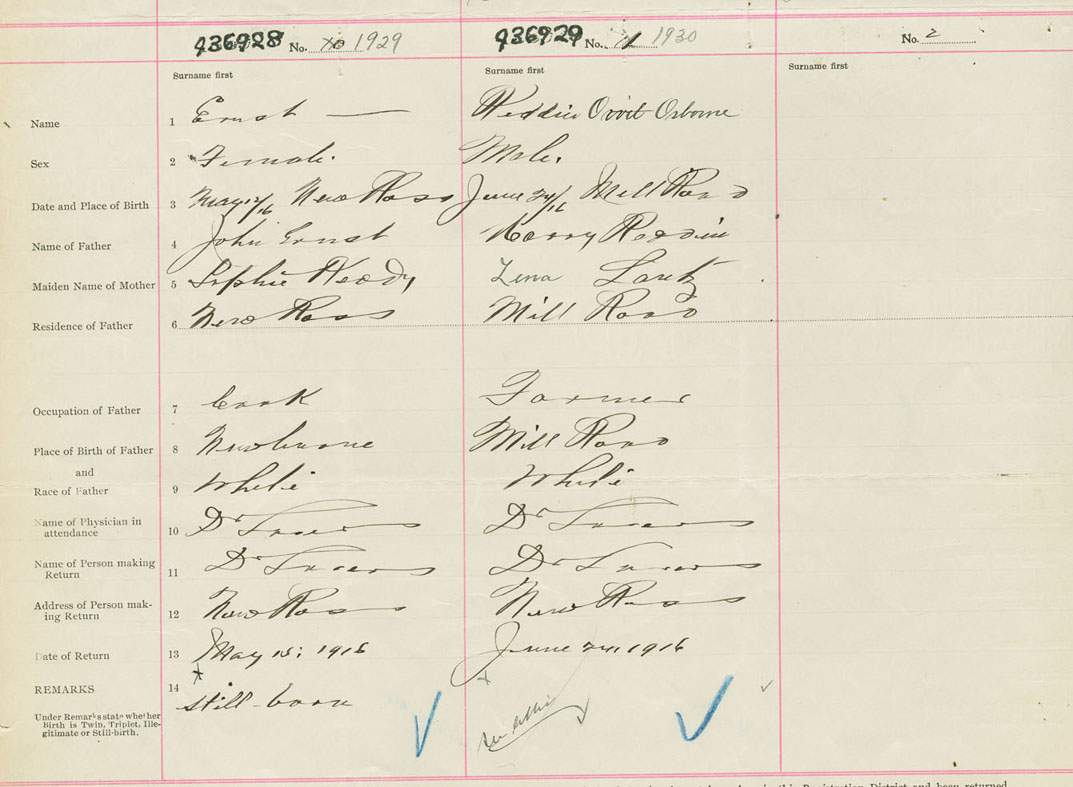 936928 No. 1929 936929 No. 1930 No. 2
Surname first Surname first Surname first
Name 1 Ernst — Reddin Orvit Osborne
Sex 2 Female. Male.
Date and Place of Birth 3 May 12/16 New Ross June 24/16 Mill Road
Name of Father 4 John Ernst Harry Reddin
Maiden Name of Mother 5 Sophie Keddy Lena Lantz
Residence of Father 6 New Ross Mill Road
Occupation of Father 7 Cook Farmer
Place of Birth of Father 8 Newburne Mill Road
and
Race of Father 9 White White
Name of Physician in
attendance 10 Dr Dr
Name of Person making
Return 11 Dr Dr
Address of Person mak-
ing Return 12 New Ross New Ross
Date of Return 13 May 15: 1916 June 24 1916
REMARKS 14 Still-born
Under Remarks state whether
Birth is Twin, Triplet, Ille-
gitimate or Still-birth.
in this Registration District and been returned